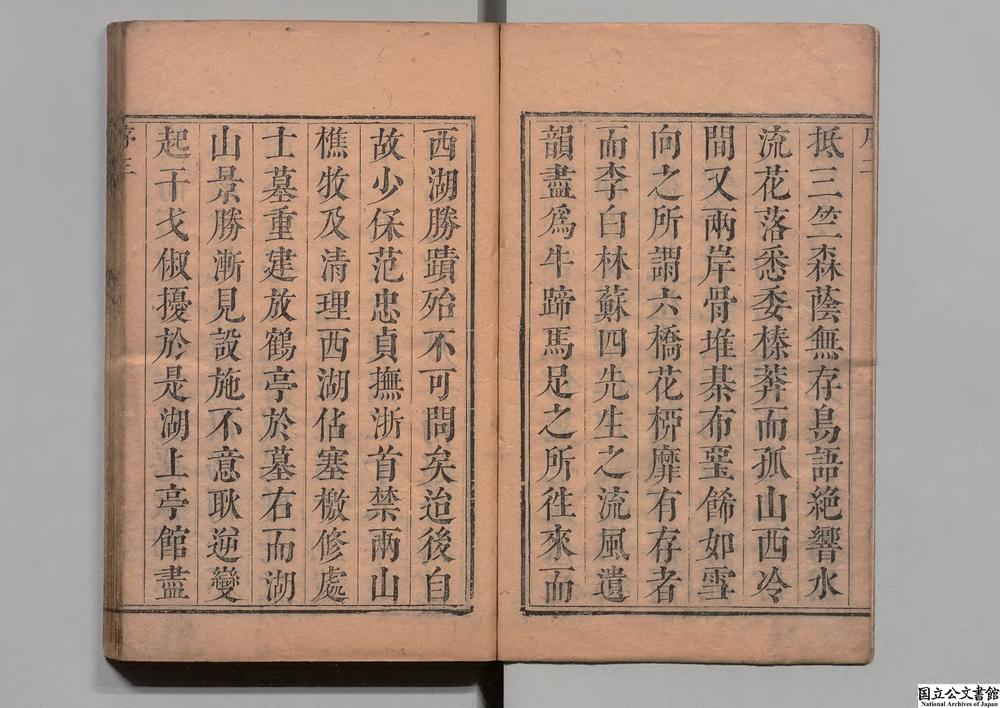 序二
抵三竺森蔭無存鳥語絶響水
流花落悉委榛莽而孤山西冷
間又兩岸骨堆棊布堊餙如雪
向之所謂六橋花柳靡有存者
而李白林蘇四先生之流風遺
韻盡爲牛蹄馬足之所徃來而
西湖勝蹟殆不可問矣迨後自
故少保范忠貞撫浙首禁兩山
樵牧及清理西湖佔塞檄修處
士墓重建放鶴亭於墓右而湖
山景勝漸見設施不意耿逆變
起干戈俶擾於是湖上亭館盡
序三
国立公文書館
National Archives of Japan